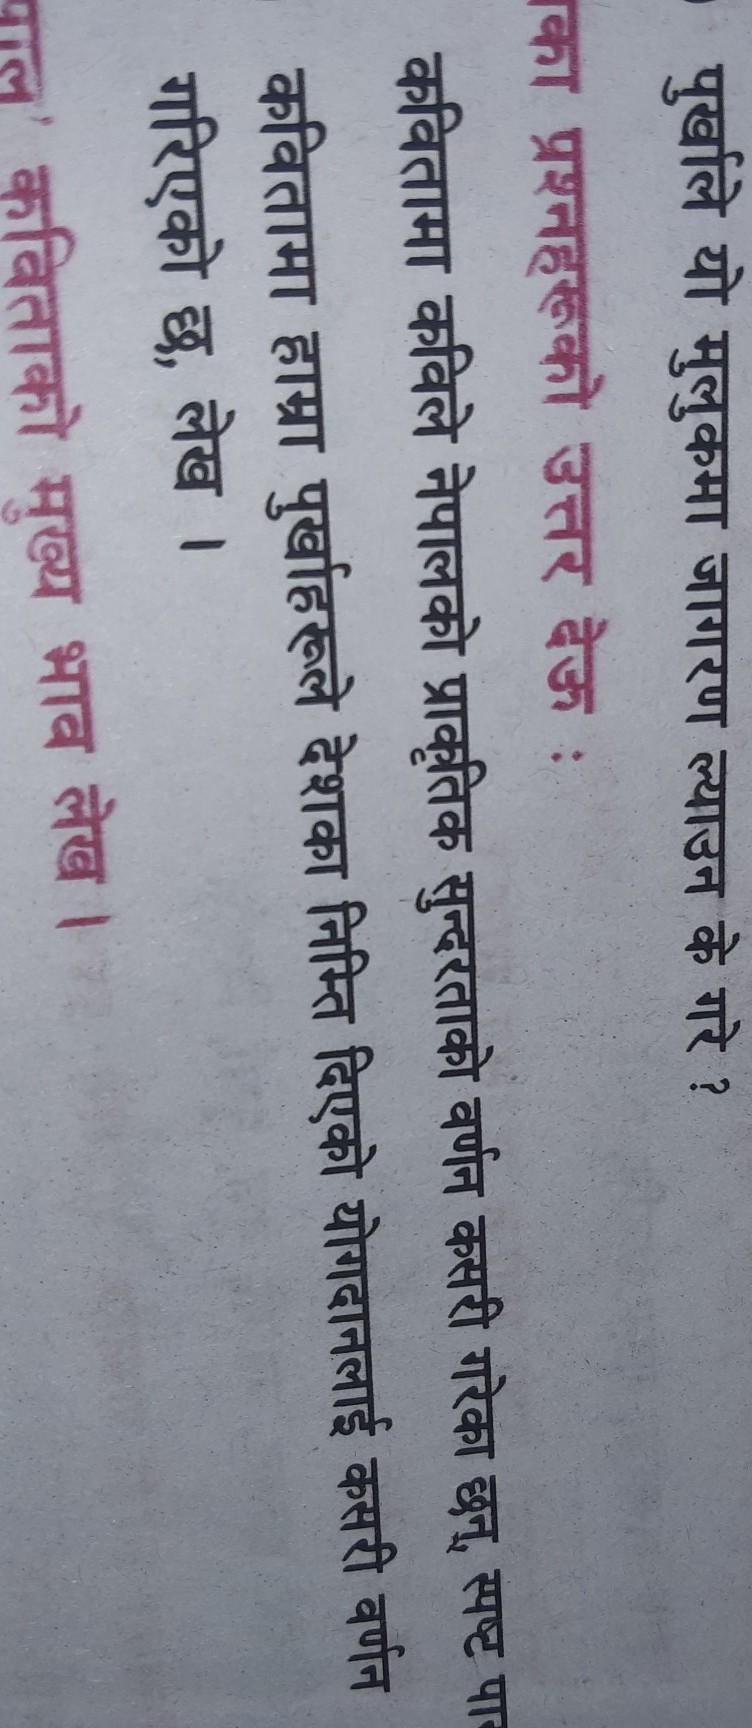 पुर्खाले यो मुलुकमा जागरण ल्याउन के गरे ?
का प्रश्नहरूको उत्तर देऊ :
कवितामा कविले नेपालको प्राकृतिक सुन्दरताको वर्णन कसरी गरेका छन्, स्पष्ट
कवितामा हाम्रा पुर्खाहरूले देशका निम्ति दिएको योगदानलाई कसरी वर्णन
गरिएको छ, लेख ।
कविताको मुख्य भाव लेख ।